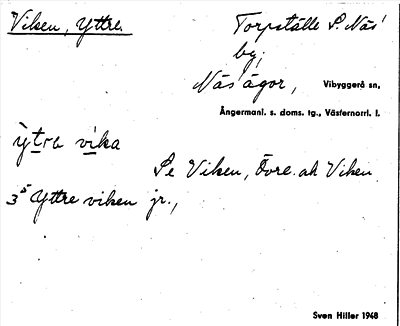 Viken, Yttre.
Torpställe S. Näs'
by,
Näs' ägor, Vibyggerå sn,
Ångermanl. s. doms. tg., Västernorrl. l.
ỳtra vika
Se Viken, Övre. ak Viken
Yttre viken jr.,
Sven Hiller 1948